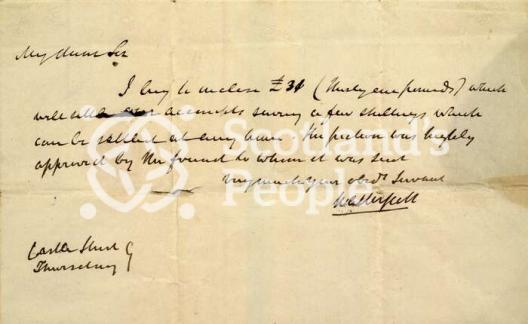 My dear Sir
I beg to inclose £31 (thirty one pounds) which
will our accompts saving a few shillings which
can be settled at any time. The was highly
approved by the friend to whom it was sent
Very much your obedt Servant
Walter Scott
Castle Street
Thursday
Scotland's
People